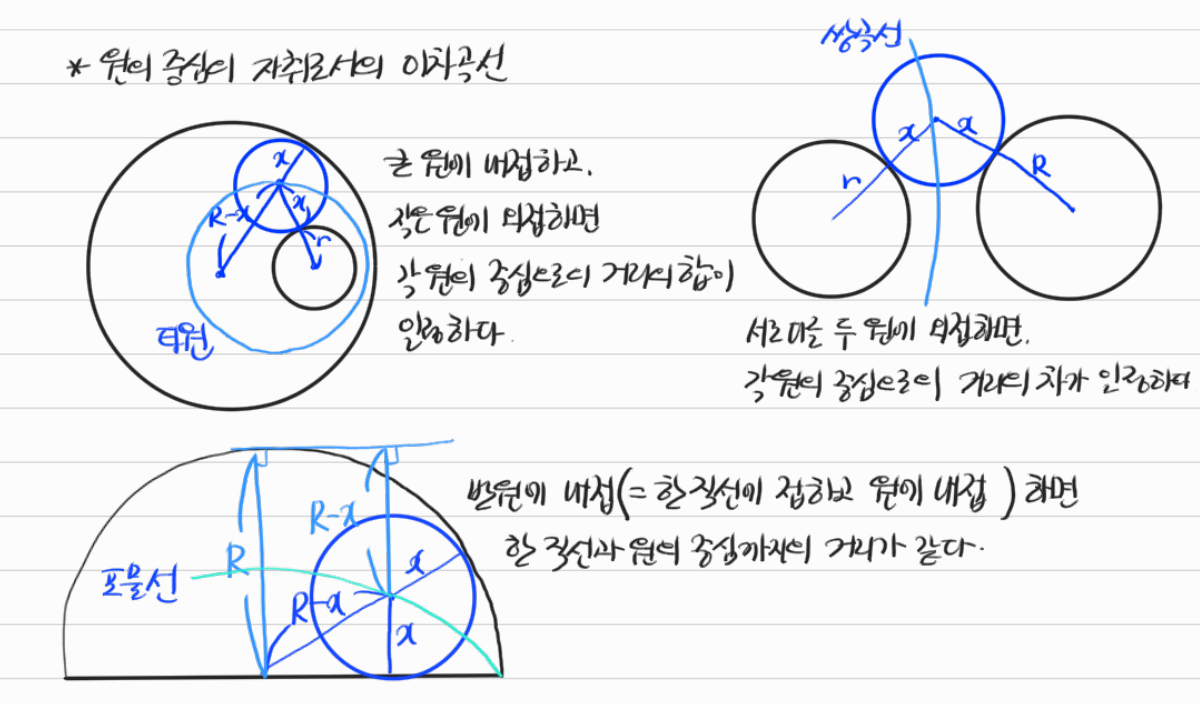 * 원의 중심의 자취로서의 이차곡선
x
R-x
x
r
타원
큰 원에 내접하고,
작은 원에 외접하면
각 원의 중심으로의 거리의 합이
일정하다.
쌍곡선
x
x
r
R
서로 다른 두 원에 외접하면,
각 원의 중심으로의 거리의 차가 일정하다
R-x
R
x
포물선
R-x
x
반원에 내접(= 한 직선에 접하고 원에 내접) 하면
한 직선과 원의 중심까지의 거리가 같다.